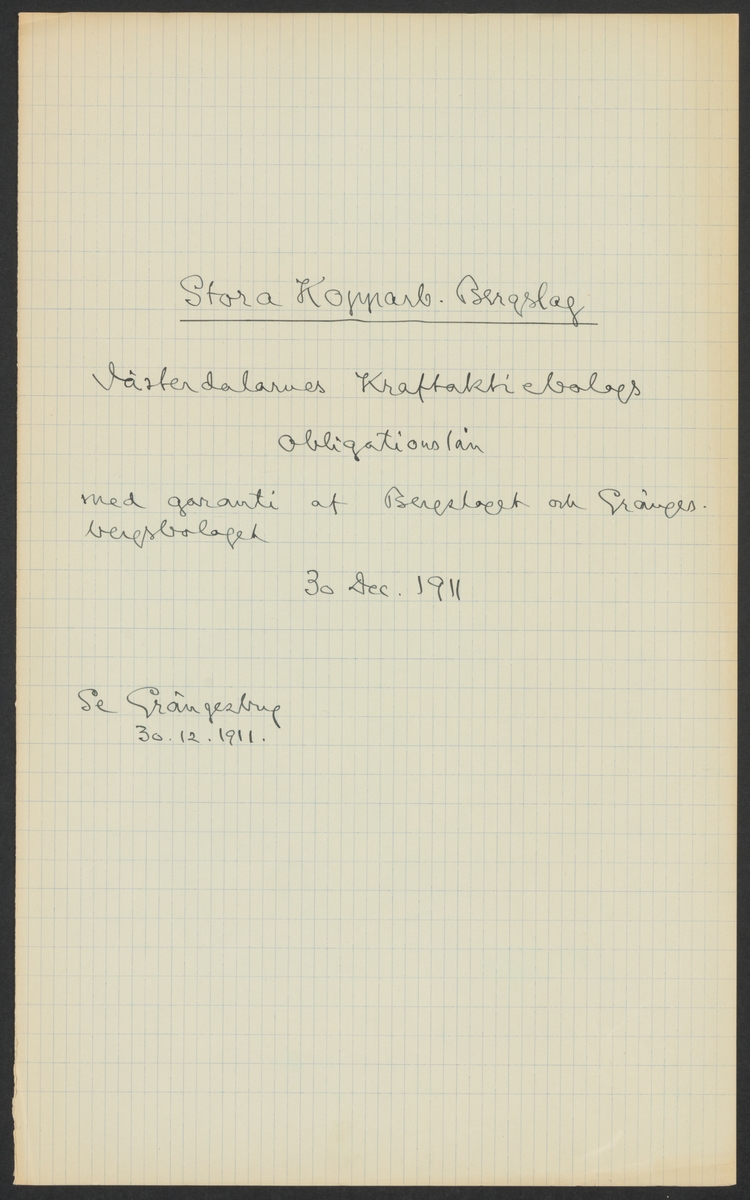 Stora Kopparb. Bergslag
Västerdalarnes Kraftaktiebolags
Obligationslån
med garanti af Bergslaget och Gränges-
bergsbolaget
30 Dec. 1911
Se Grängesbrg
30.12.1911.